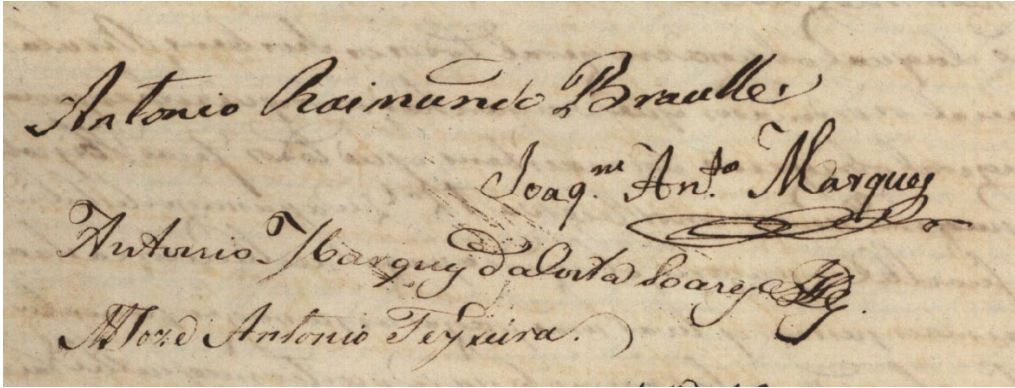 Antonio Raimundo Braulle
Joaq.m An.to Marques
Antonio Marques da Costa Soares
Joze Antonio Teyxeira.